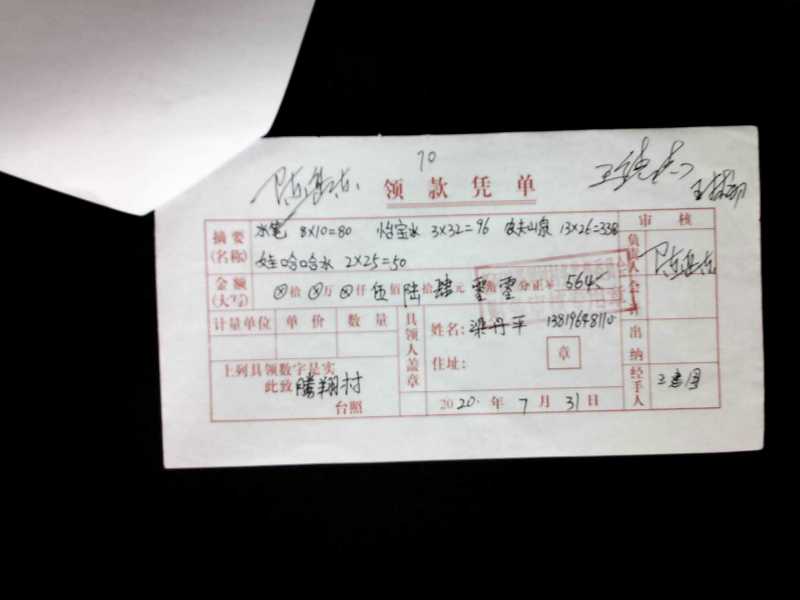 70
领款凭单
摘要 水笔 8×10=80 怡宝水 3×32=96 农夫山泉 13×26=338 审核
(名称) 娃哈哈水 2×25=50
负责人
金额(大写) ⊗拾⊗万⊗仟伍佰陆拾肆元零角零分正¥ 564
会计
计量单位 单价 数量
具领人盖章
姓名: 梁丹平 13819648110
出纳
住址: 章
上列具领数字是实
此致 腾翔村
台照
2020年7月31日
经手人